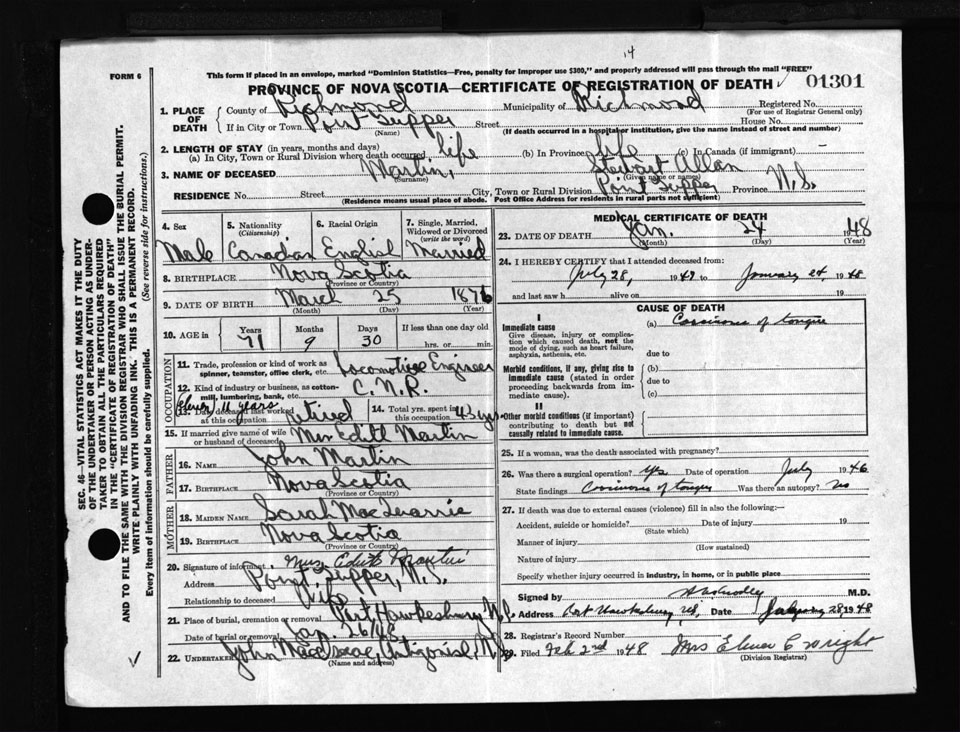 14
FORM 6
This form if placed in an envelope, marked "Dominion Statistics—Free, penalty for improper use $300," and properly addressed will pass through the mail "FREE"
PROVINCE OF NOVA SCOTIA—CERTIFICATE OF REGISTRATION OF DEATH ✓ 01301
SEC. 46—VITAL STATISTICS ACT MAKES IT THE DUTY
OF THE UNDERTAKER OR PERSON ACTING AS UNDER-
TAKER TO OBTAIN ALL THE PARTICULARS REQUIRED
IN THE "CERTIFICATE OF REGISTRATION OF DEATH"
AND TO FILE THE SAME WITH THE DIVISION REGISTRAR WHO SHALL ISSUE THE BURIAL PERMIT.
WRITE PLAINLY WITH UNFADING INK. THIS IS A PERMANENT RECORD.
Every item of information should be carefully supplied. (See reverse side for instructions.)
1. PLACE OF DEATH
County of Richmond Municipality of Richmond Registered No.
(For use of Registrar General only)
If in City or Town Point Tupper Street House No.
(Name) (If death occurred in a hospital or institution, give the name instead of street and number)
2. LENGTH OF STAY (in years, months and days)
(a) In City, Town or Rural Division where death occurred life (b) In Province life (c) In Canada (if immigrant) —
3. NAME OF DECEASED Martin, Stewart Allan
(Surname) (Given name or names)
RESIDENCE No. Street City, Town or Rural Division Point Tupper Province N.S.
(Residence means usual place of abode. Post Office Address for residents in rural parts not sufficient)
4. Sex 5. Nationality (Citizenship) 6. Racial Origin 7. Single, Married, Widowed or Divorced (write the word)
Male Canadian English Married
8. BIRTHPLACE Nova Scotia
(Province or Country)
9. DATE OF BIRTH March 25 1876
(Month) (Day) (Year)
10. AGE in Years Months Days If less than one day old
71 9 30 hrs. or min.
OCCUPATION
11. Trade, profession or kind of work as spinner, teamster, office clerk, etc. Locomotive Engineer
12. Kind of industry or business, as cotton-mill, lumbering, bank, etc. C.N.R.
11 years
13. Date deceased last worked at this occupation retired 14. Total yrs. spent in this occupation 43 yrs.
15. If married give name of wife or husband of deceased Mrs Edith Martin
FATHER
16. Name John Martin
17. Birthplace Nova Scotia
(Province or Country)
MOTHER
18. Maiden Name Sarah
19. Birthplace Nova Scotia
(Province or Country)
20. Signature of informant Mrs. Edith Martin
Address Point Tupper, N.S.
Relationship to deceased Wife
21. Place of burial, cremation or removal Port Hawkesbury N.S.
Date of burial or removal Jan. 26/48
22. Undertaker John MacIsaac, Antigonish, N.S.
(Name and address)
✓
MEDICAL CERTIFICATE OF DEATH
23. DATE OF DEATH Jan. 24 1948
(Month) (Day) (Year)
24. I HEREBY CERTIFY that I attended deceased from:
July 28, 1947 to January 24, 1948
and last saw h alive on 19
CAUSE OF DEATH
I
Immediate cause
Give disease, injury or complication which caused death, not the mode of dying, such as heart failure, asphyxia, asthenia, etc.
(a) Carcinoma of tongue
due to
Morbid conditions, if any, giving rise to immediate cause (stated in order proceeding backwards from immediate cause).
(b)
due to
(c)
II
Other morbid conditions (if important) contributing to death but not causally related to immediate cause.
25. If a woman, was the death associated with pregnancy?
26. Was there a surgical operation? Yes Date of operation July 1946
State findings Carcinoma of tongue Was there an autopsy? No
27. If death was due to external causes (violence) fill in also the following:—
Accident, suicide or homicide? Date of injury 19
(State which)
Manner of injury
(How sustained)
Nature of injury
Specify whether injury occurred in industry, in home, or in public place
Signed by M.D.
Address Port Hawkesbury, N.S. Date January 28, 1948
28. Registrar's Record Number
29. Filed Feb 2nd 1948 Mrs Elmer C Wright
(Division Registrar)